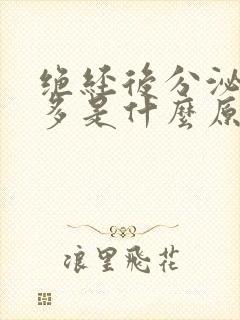 绝经後分泌
多是什麼原
浪里飛花